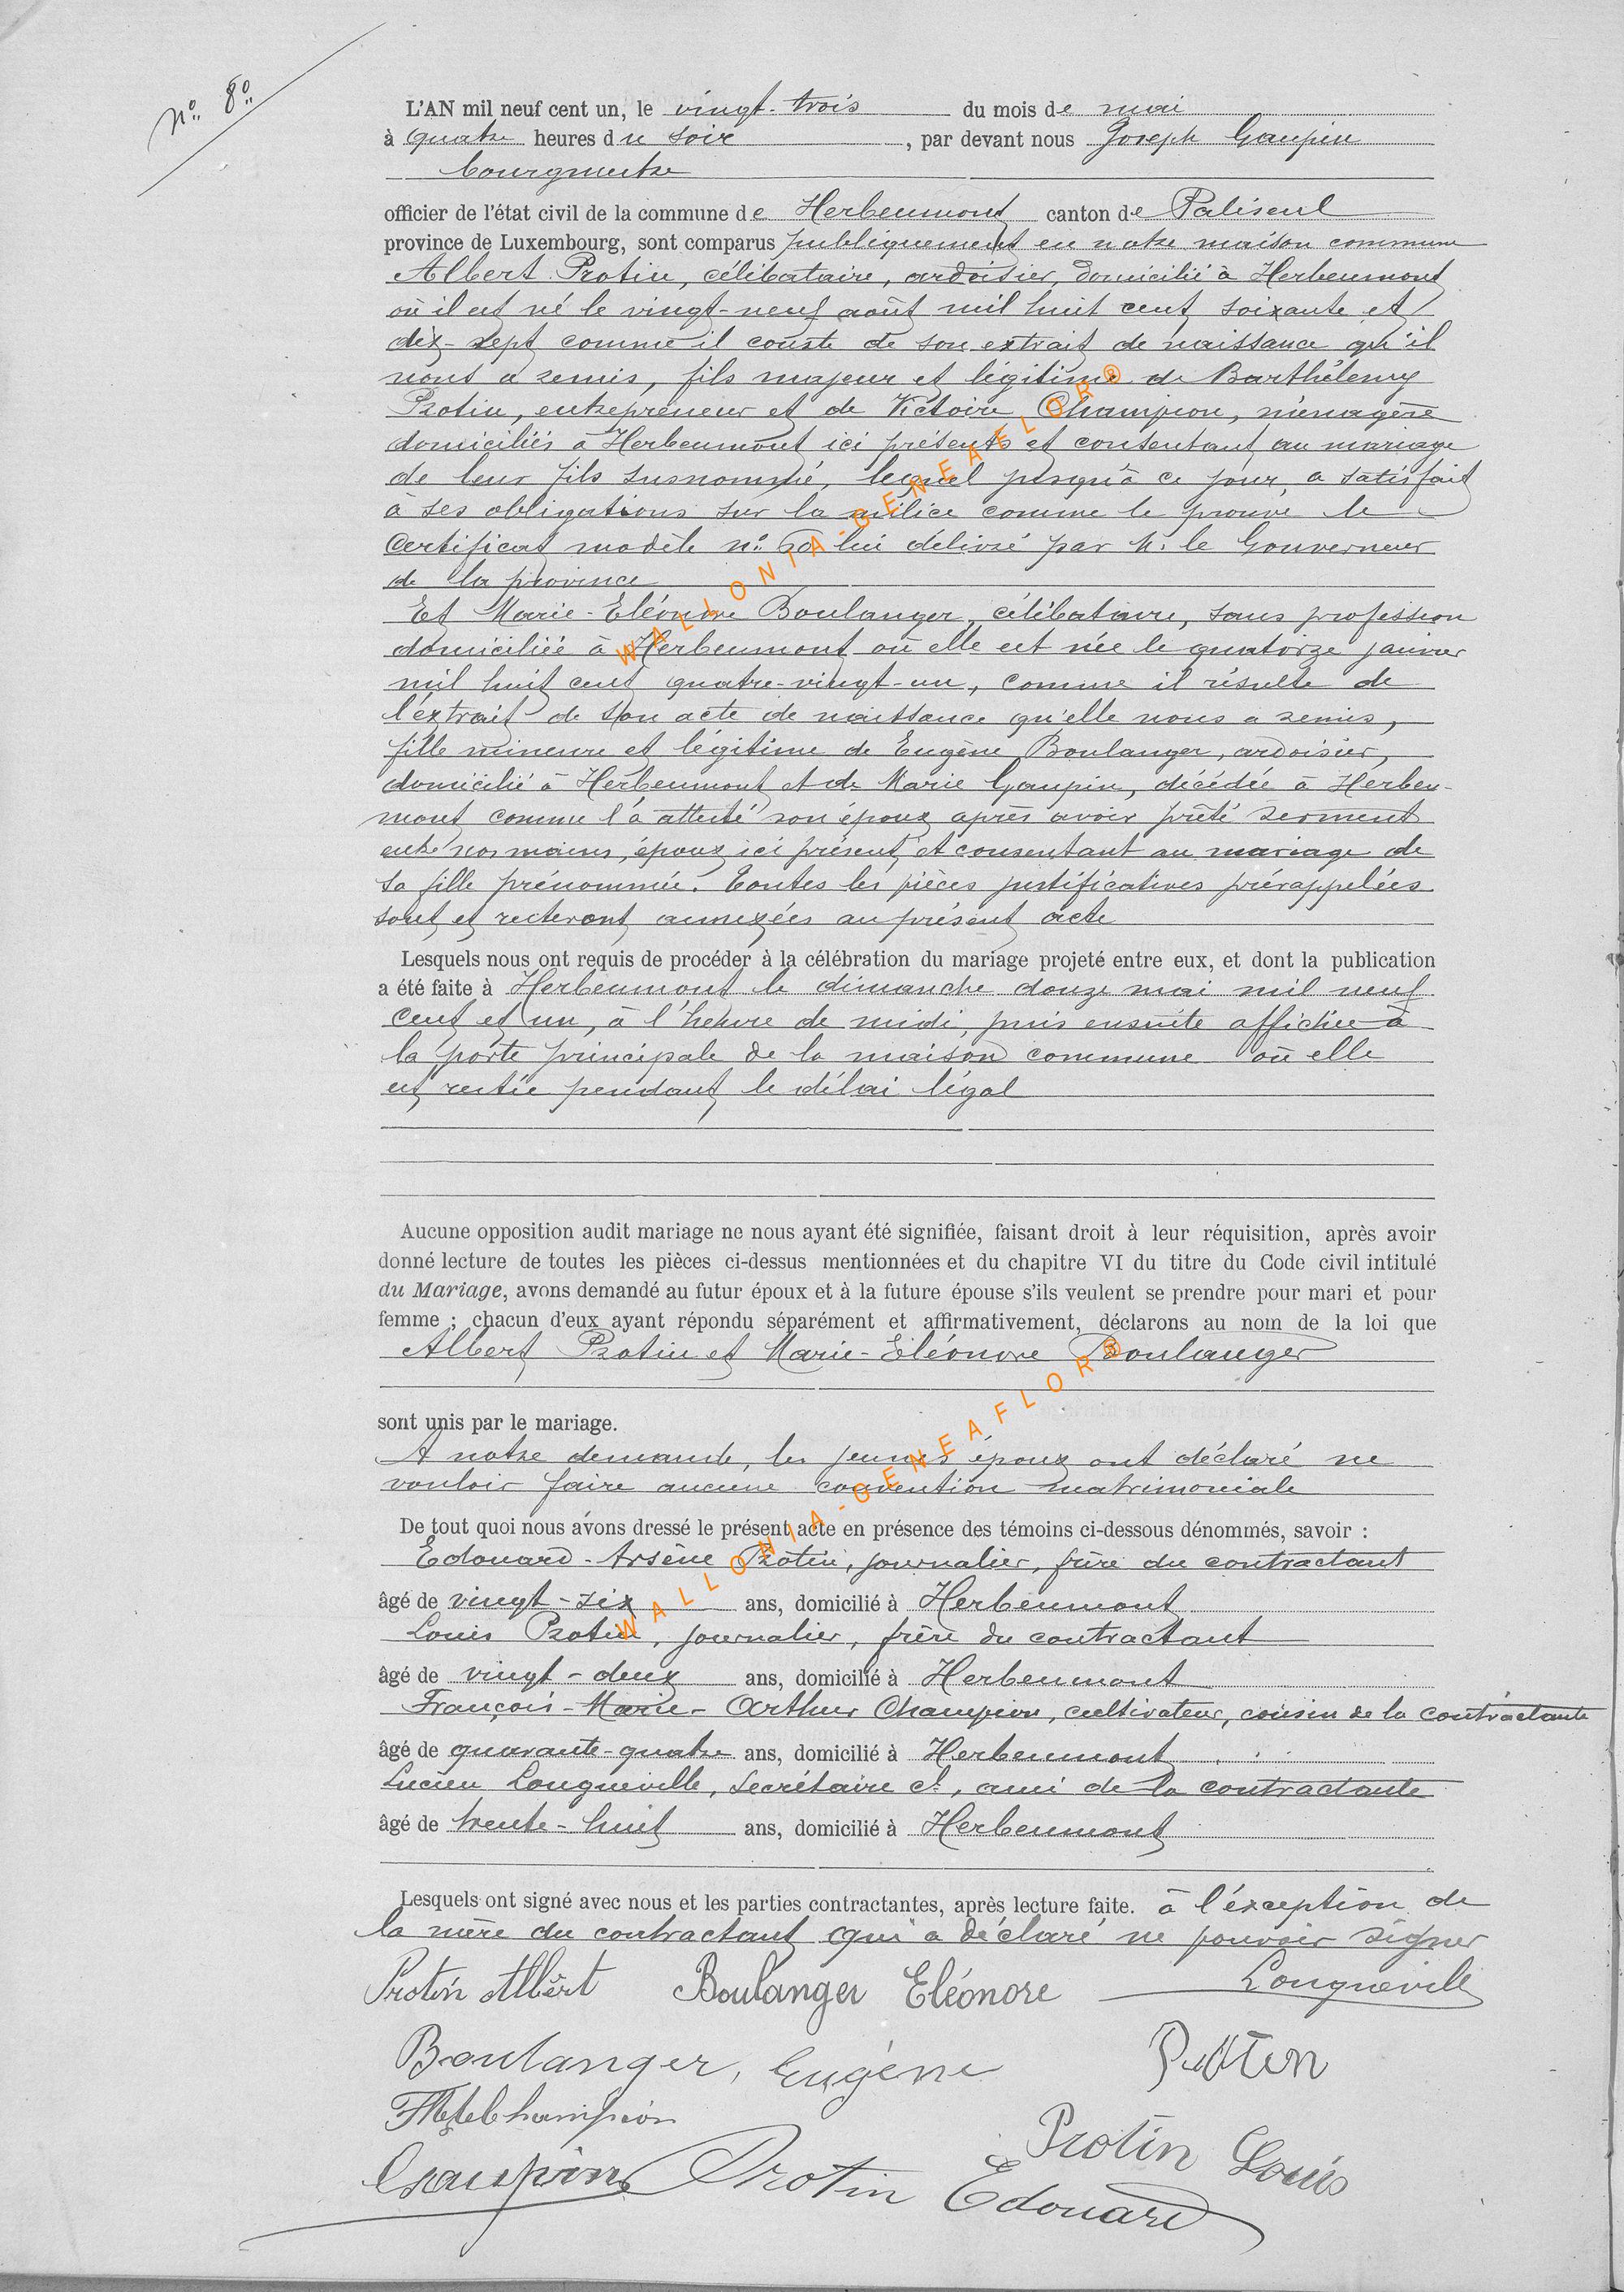 nº 8º
L'AN mil neuf cent un, le vingt-trois du mois de mai
à quatre heures du soir, par devant nous Joseph Gaupin
bourgmestre
officier de l'état civil de la commune de Herbeumont canton de Paliseul
province de Luxembourg, sont comparus publiquement en notre maison commune
Albert Protin, célibataire, ardoisier, domicilié à Herbeumont
où il est né le vingt-neuf août mil huit cent soixante et
dix-sept comme il conste de son extrait de naissance qu'il
nous a remis, fils majeur et légitime de Barthélemy
Protin, entrepreneur et de Victoire Champion, ménagère
domiciliés à Herbeumont ici présents et consentant au mariage
de leur fils susnommé, lequel jusqu'à ce jour, a satisfait
à ses obligations sur la milice comme le prouve le
Certificat modèle nº lui délivré par M. le Gouverneur
de la province
Et Marie-Eléonore Boulanger, célibataire, sans profession
domiciliée à Herbeumont où elle est née le quatorze janvier
mil huit cent quatre-vingt-un, comme il résulte de
l'extrait de son acte de naissance qu'elle nous a remis,
fille mineure et légitime de Eugène Boulanger, ardoisier,
domicilié à Herbeumont et de Marie Gaupin, décédée à Herbeu-
mont comme l'a attesté son époux après avoir prêté serment
entre nos mains, époux ici présent et consentant au mariage de
sa fille prénommée. Toutes les pièces justificatives prérappelées
sont et resteront annexées au présent acte
Lesquels nous ont requis de procéder à la célébration du mariage projeté entre eux, et dont la publication
a été faite à Herbeumont le dimanche douze mai mil neuf
cent et un, à l'heure de midi, puis ensuite affichée à
la porte principale de la maison commune où elle
est restée pendant le délai légal
Aucune opposition audit mariage ne nous ayant été signifiée, faisant droit à leur réquisition, après avoir
donné lecture de toutes les pièces ci-dessus mentionnées et du chapitre VI du titre du Code civil intitulé
du Mariage, avons demandé au futur époux et à la future épouse s'ils veulent se prendre pour mari et pour
femme ; chacun d'eux ayant répondu séparément et affirmativement, déclarons au nom de la loi que
Albert Protin et Marie-Eléonore Boulanger
sont unis par le mariage.
A notre demande, les jeunes époux ont déclaré ne
vouloir faire aucune convention matrimoniale
De tout quoi nous avons dressé le présent acte en présence des témoins ci-dessous dénommés, savoir :
Edouard-Arsène Protin, journalier, frère du contractant
âgé de vingt-six ans, domicilié à Herbeumont
Louis Protin, journalier, frère du contractant
âgé de vingt-deux ans, domicilié à Herbeumont
François-Marie-Arthur Champion, cultivateur, cousin de la contractante
âgé de quarante-quatre ans, domicilié à Herbeumont
Lucien Longueville, secrétaire cl, ami de la contractante
âgé de trente-huit ans, domicilié à Herbeumont
Lesquels ont signé avec nous et les parties contractantes, après lecture faite. à l'exception de
la mère du contractant qui a déclaré ne pouvoir signer
Protin Albert Boulanger Eléonore Longueville
Boulanger, Eugène Protin
Champion
Protin Louis
Gaupin Protin Edouard
WALLONIA-GENEAFLOR®
WALLONIA-GENEAFLOR®